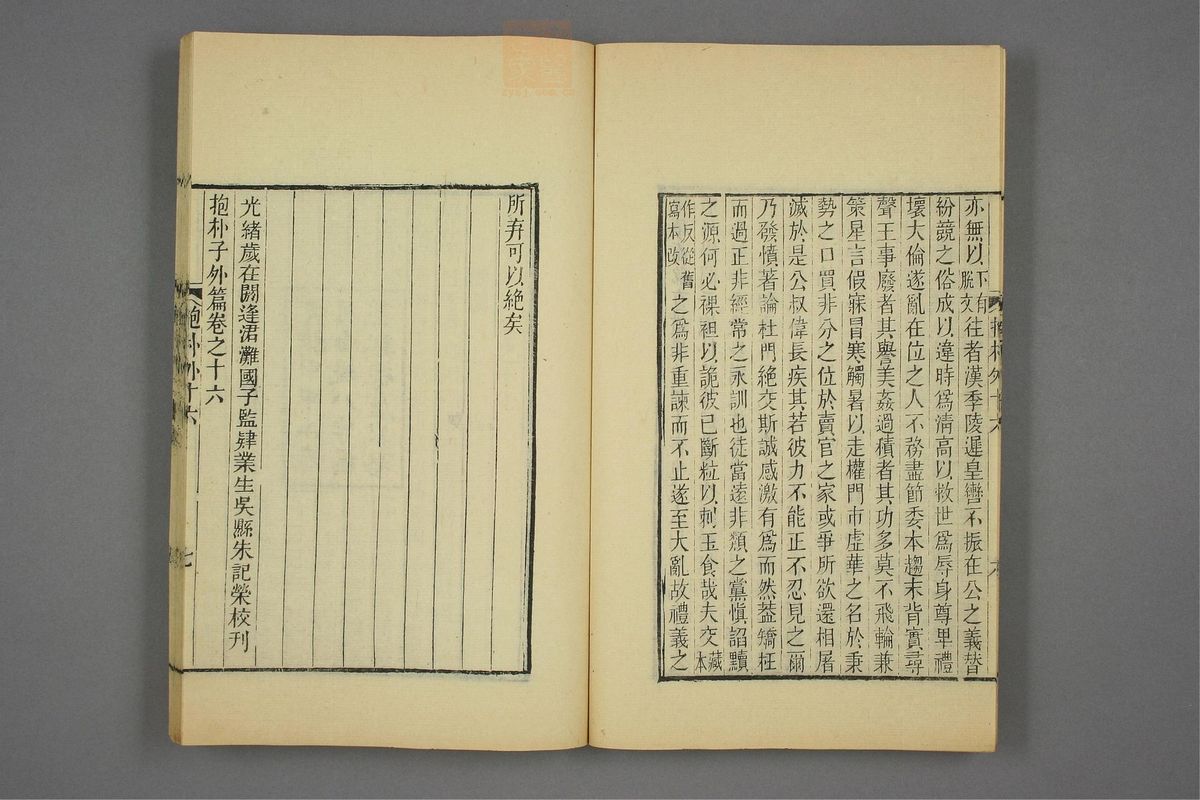 亦無以下有脫文往者漢季陵遲皇轡不振在公之義替
紛競之俗成以違時爲清高以救世爲辱身尊卑禮
壞大倫遂亂在位之人不務盡節委本趨末背實尋
聲王事廢者其譽美姦過積者其功多莫不飛輪兼
策星言假寐冒寒觸暑以走權門市虛華之名於秉
勢之口買非分之位於賣官之家或爭所欲還相屠
滅於是公叔偉長疾其若彼力不能正不忍見之爾
乃發憤著論杜門絕交斯誠感激有爲而然蓋矯枉
而過正非經常之永訓也徒當遠非類之黨慎諂黷
之源何必裸袒以詭彼已斷粒以刺玉食哉夫交藏本
作反從舊寫本改之爲非重諫而不止遂至大亂故禮義之
抱朴外十六
六
所弃可以絕矣
光緒歲在閼逢涒灘國子監肄業生吳縣朱記榮校刊
抱朴子外篇卷之十六
抱朴外十六
七